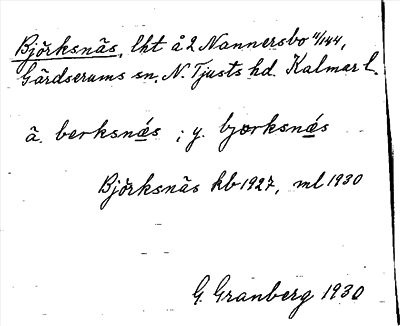 Björksnäs, lht å 2 Nannersbo 4/144,
Gärdserums sn, N. Tjusts hd. Kalmar l.
ä. berksnǽs ; y. bjørksnǽs
Björksnäs kb 1927, ml 1930
G. Granberg 1930